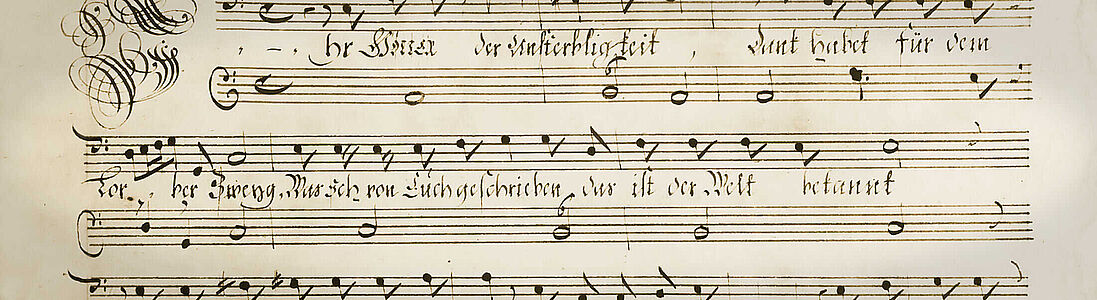 hr Götter der Unsterbligkeit, Dank habet für dem
Lor- ber Zweyg, Was Ich von Euch geschrieben, das ist der Welt bekannt